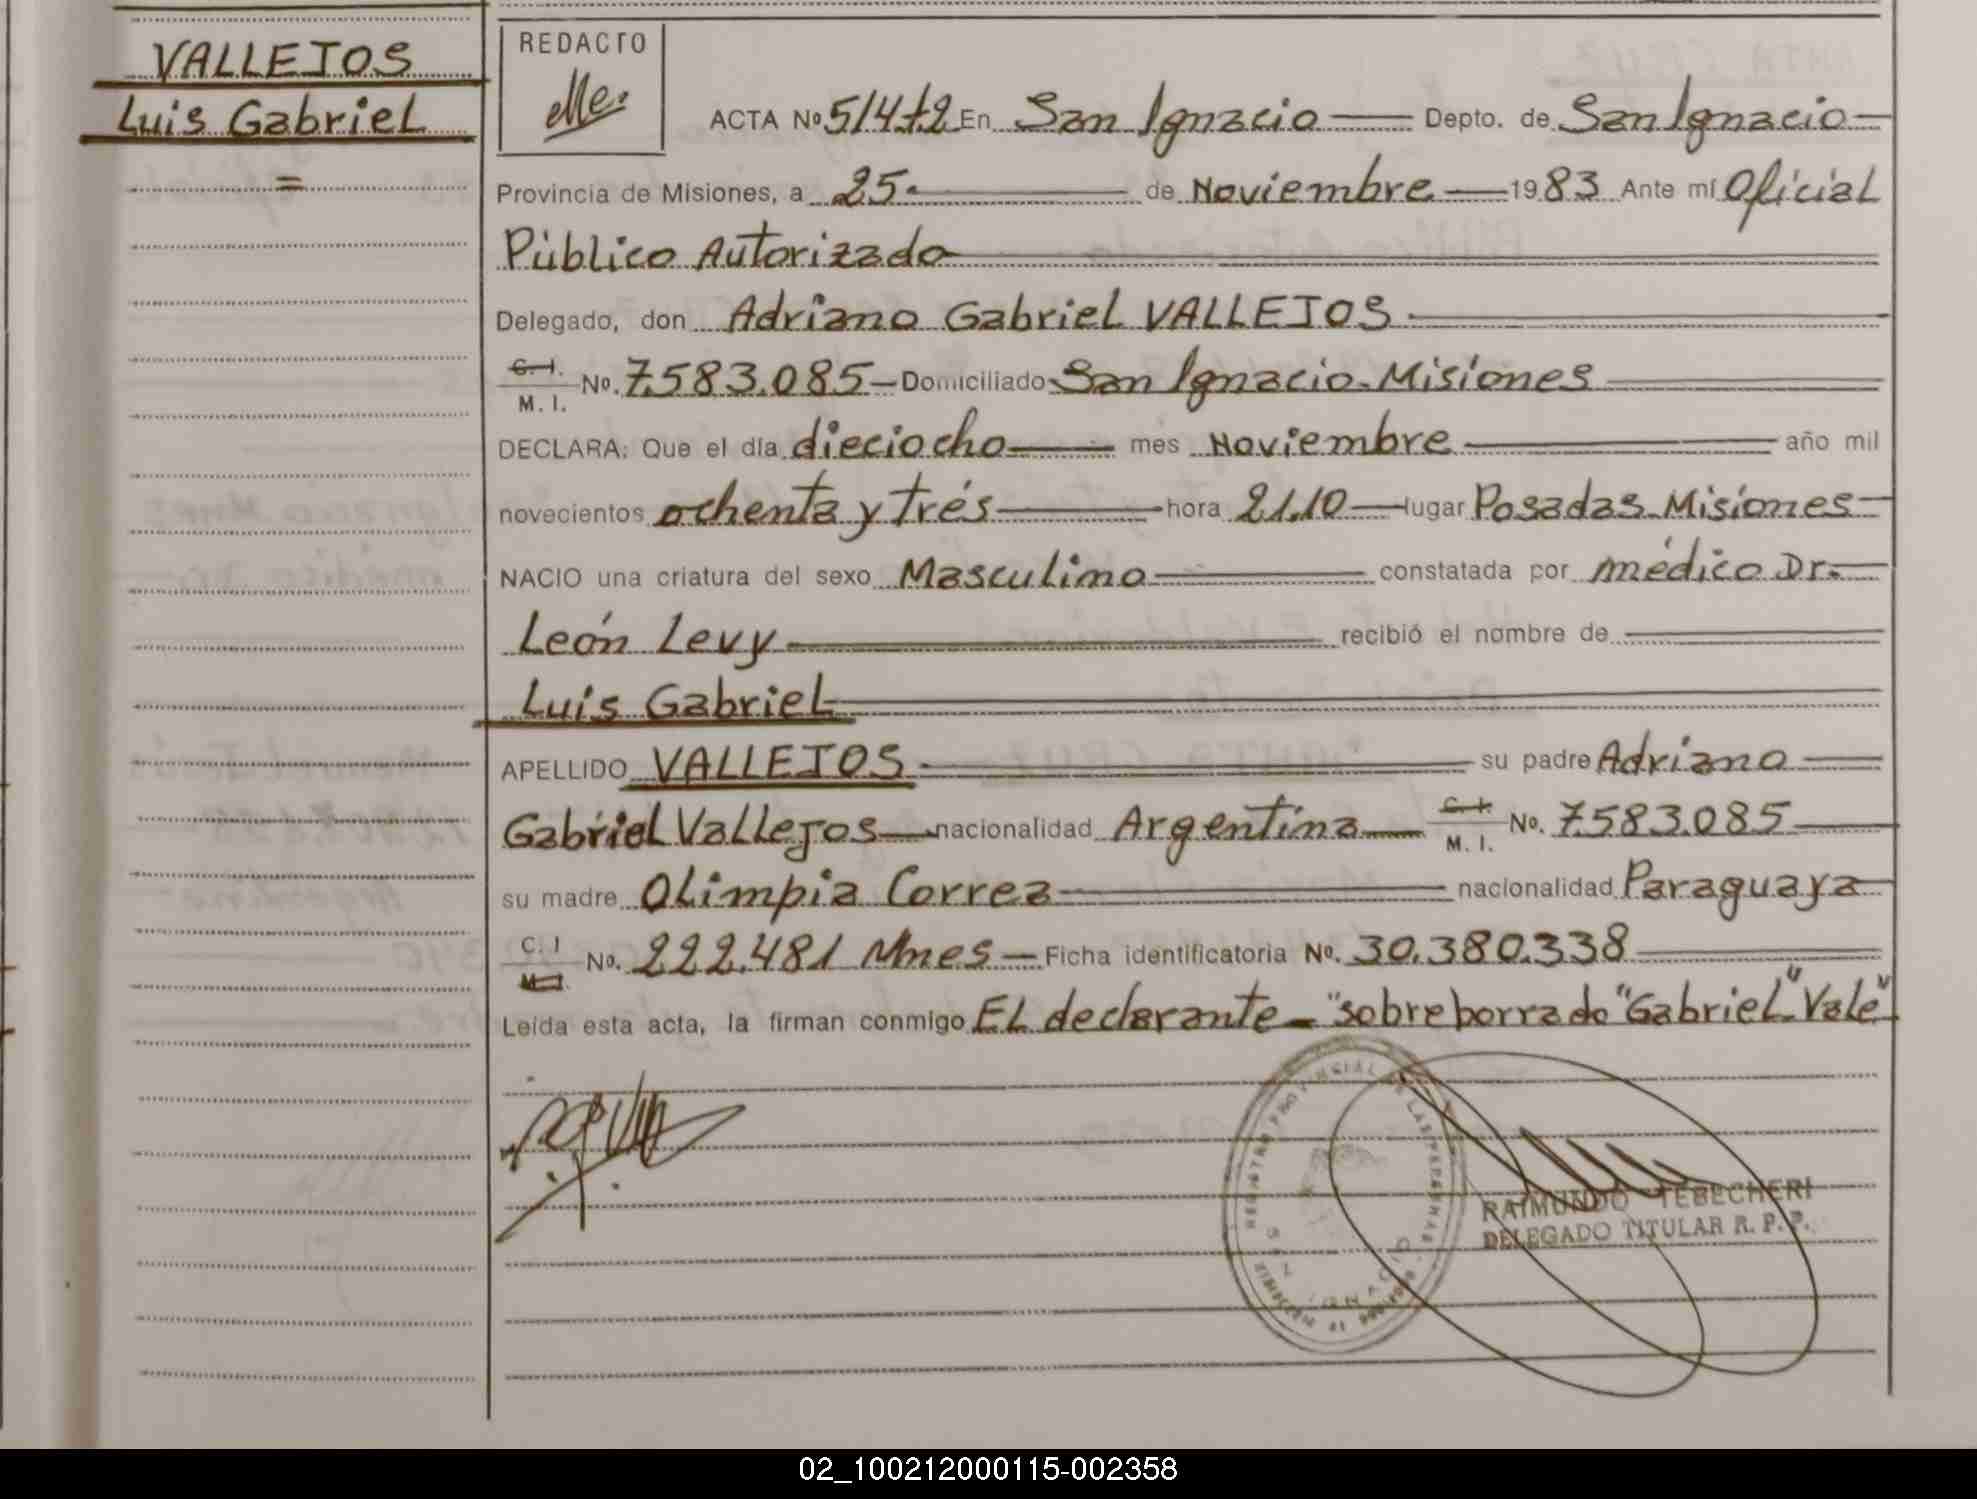 VALLEJOS
Luis Gabriel
=
REDACTO
ACTA Nº 514 t2 En San Ignacio Depto. de San Ignacio
Provincia de Misiones, a 25 de Noviembre 1983 Ante mí Oficial
Público Autorizado
Delegado, don Adriano Gabriel VALLEJOS
C. I.
M. I. Nº. 7.583.085 Domiciliado San Ignacio. Misiones
DECLARA: Que el día dieciocho mes Noviembre año mil
novecientos ochenta y trés hora 21.10 lugar Posadas. Misiones
NACIO una criatura del sexo Masculino constatada por médico Dr.
León Levy recibió el nombre de
Luis Gabriel
APELLIDO VALLEJOS su padre Adriano
Gabriel Vallejos nacionalidad Argentina C. I. M. I. Nº. 7.583.085
su madre Olimpia Correa nacionalidad Paraguaya
C. I M. I. Nº. 222.481 Mnes Ficha identificatoria Nº. 30.380.338
Leída esta acta, la firman conmigo El declarante - "sobreborrado "Gabriel" Vale"
REGISTRO PROVINCIAL DE LAS PERSONAS
SAN IGNACIO
RAIMUNDO TEBECHERI
DELEGADO TITULAR R. P. P.
02_100212000115-002358